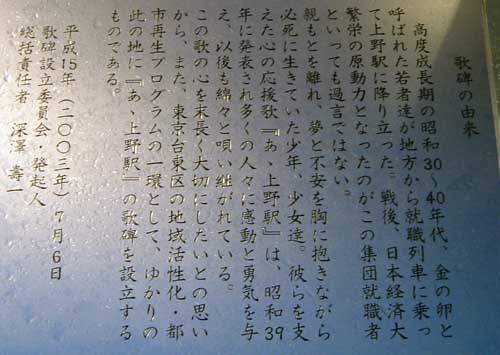 歌碑の由来
高度成長期の昭和30〜40年代、金の卵と
呼ばれた若者達が地方から就職列車に乗っ
て上野駅に降り立った。戦後、日本経済大
繁栄の原動力となったのがこの集団就職者
といっても過言ではない。
親もとを離れ、夢と不安を胸に抱きながら
必死に生きていた少年、少女達。彼らを支
えた心の応援歌『あゝ上野駅』は、昭和39
年に発表され多くの人々に感動と勇気を与
え、以後も綿々と唄い継がれている。
この歌の心を末長く大切にしたいとの思い
から、また、東京台東区の地域活性化・都
市再生プログラムの一環として、ゆかりの
此の地に『あゝ上野駅』の歌碑を設立する
ものである。
平成15年(二〇〇三年)7月6日
歌碑設立委員会・発起人
総括責任者 深澤壽一